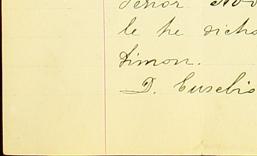 Señor Nov
le he dicho
Simon.
D. Eusebio